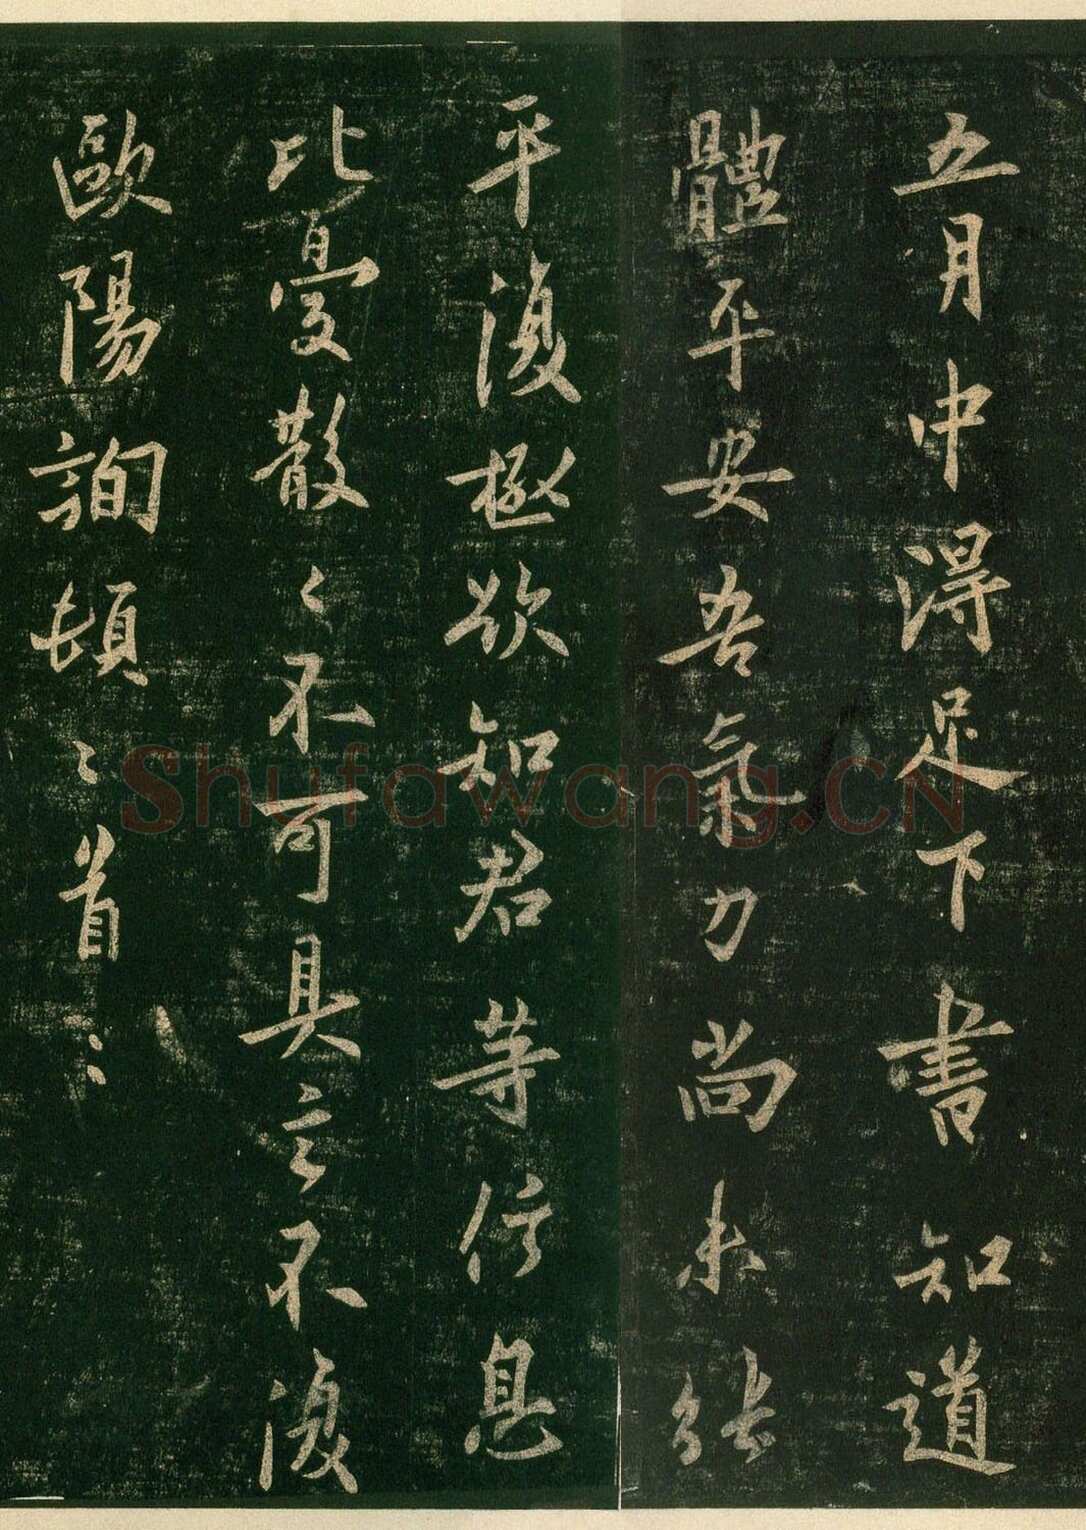 五月中得足下書知道
體平安吾氣力尚未能
平復極欲知君等信息
比憂散々不可具言不復
歐陽詢頓〻首〻
Shufawang.CN